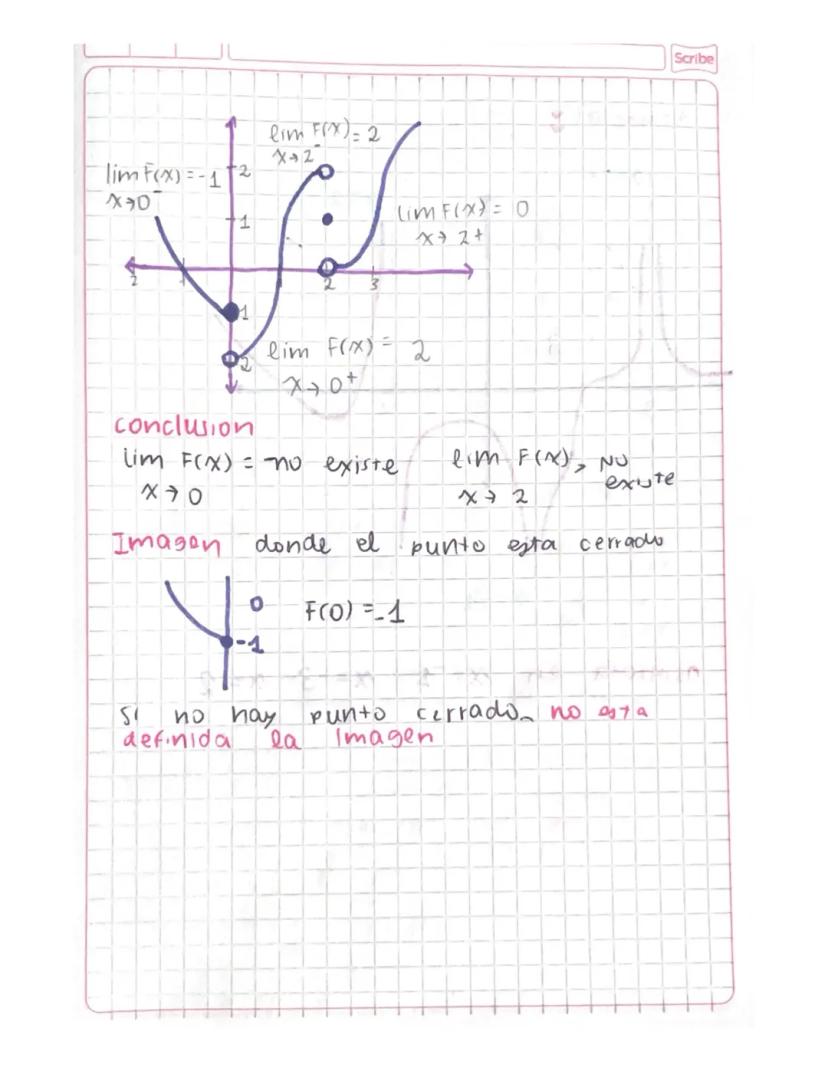 Scribe
lim F(x) = 2
x→2⁻
lim F(x) = -1
x→0⁻
2
1
lim F(x) = 0
x→2+
2
2
3
1
2
lim F(x) = 2
x→0⁺
conclusion
lim F(x) = no existe
x→0
lim F(x), NO existe
x→2
Imagen donde el punto esta cerrado
0
F(0) = -1
-1
Si no hay punto cerrado no esta
definida la Imagen